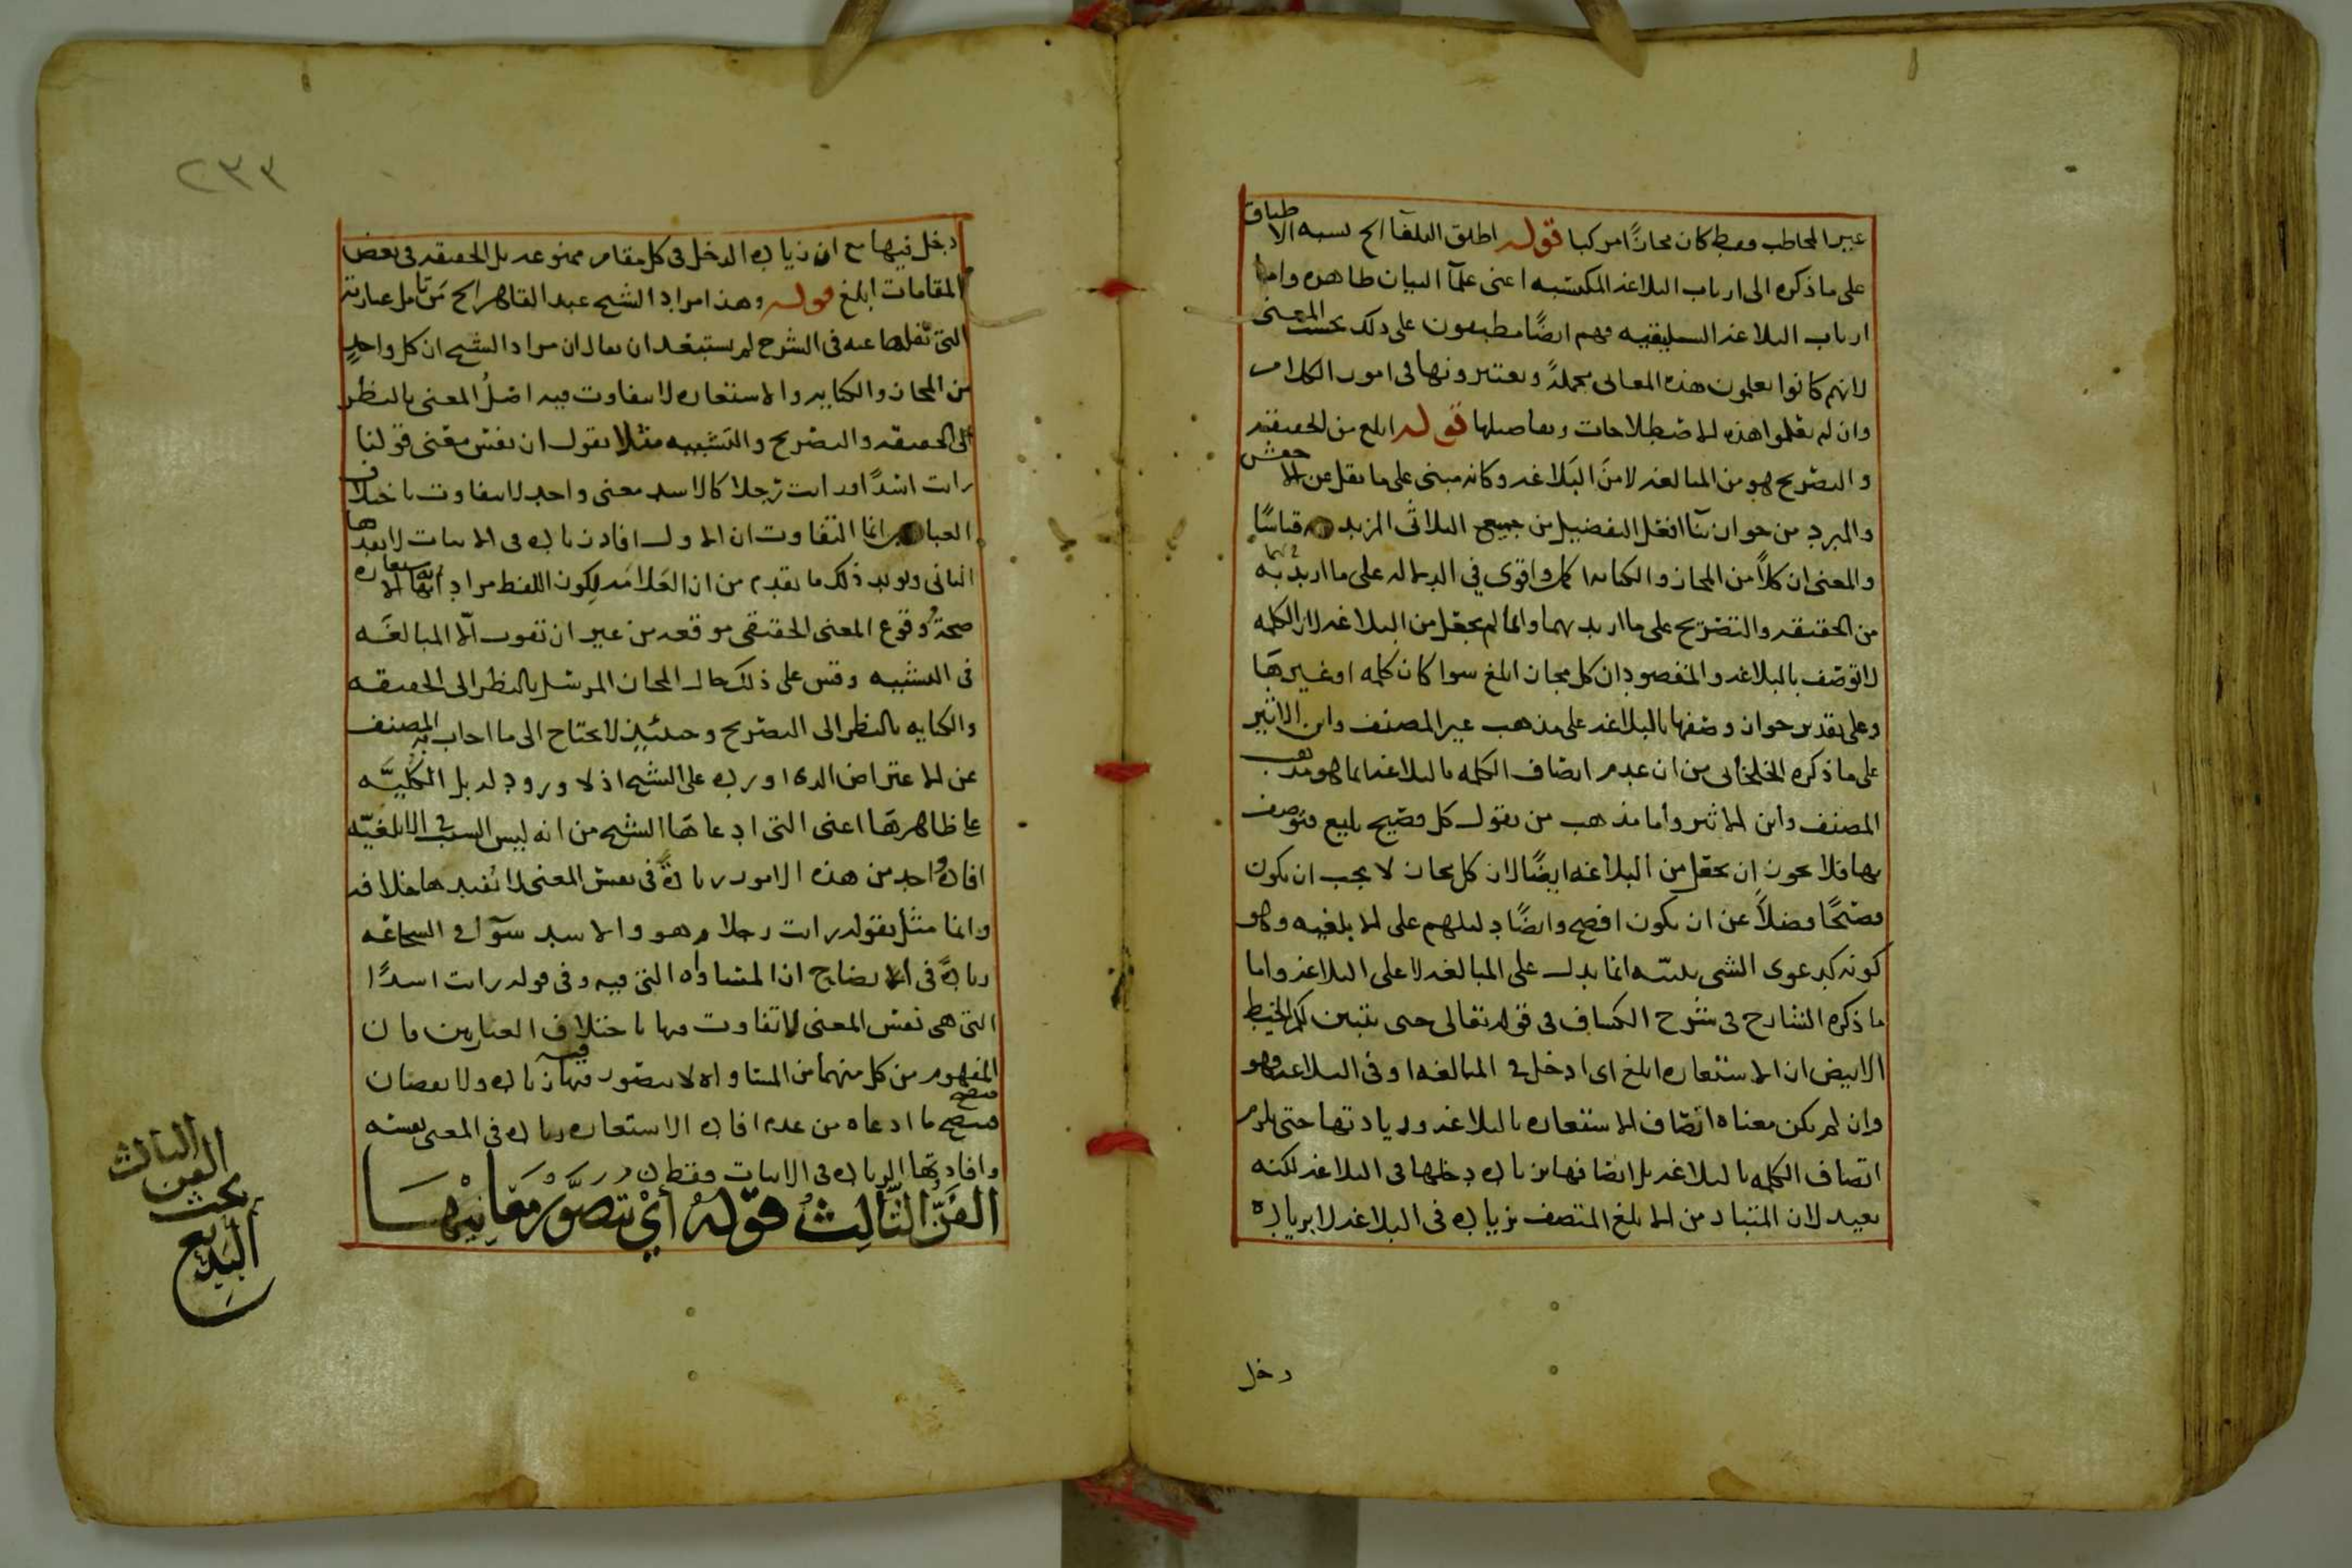 غير المخاطب فقط كان مجازًا مركبا قوله اطلق البلغآ الخ نسبه الاطباق
على ما ذكره الى ارباب البلاغه المكتسبه اعنى علمآ البيان ظاهره واما
ارباب البلاغه السليقيه فهم ايضًا مطبقون على ذلك بحسب المعنى
لانهم كانوا يعلمون هذه المعانى مجملةً ويعتبرونها فى امور الكلام
وان لم يعلموا هذه الاصطلاحات وتفاصيلها قوله ابلغ من الحقيقه
والتصريح هو من المبالغه لا من البلاغه وكانه مبنى على ما نقل عن الاخفش
والمبرد من جواز بنآ افعل التفضيل من جميع الثلاثى المزيد فيه قياسًا
والمعنى ان كلاً من المجاز والكنايه اكمل واقوى في الدلاله على ما اريد به
من الحقيقه والتصريح على ما اريد بهما وانما لم يجعل من البلاغه لان الكلمه
لا توصف بالبلاغه والمقصود ان كل مجاز ابلغ سوا كان كلمه او غيرها
وعلى تقدير جواز وصفها بالبلاغه على مذهب غير المصنف وابن الاثير
على ما ذكره الخلخالى من ان عدم اتصاف الكلمه بالبلاغه انما هو مذهب
المصنف وابن الاثير واما مذهب من يقول كل فصيح بليغ فتوصف
بها فلا يجوز ان يجعل من البلاغه ايضًا لان كل مجاز لا يجب ان يكون
فصيحًا فضلاً عن ان يكون افصح وايضًا دليلهم على الابلغيه وهو
كونه كدعوى الشى ببينه انما يدل على المبالغه لا على البلاغه واما
ما ذكره الشارح فى شرح الكشاف فى قوله تعالى حتى يتبين لكم الخيط
الابيض ان الاستعاره ابلغ اى ادخل فى المبالغه او فى البلاغه فهو
وان لم يكن معناه اتصاف الاستعاره بالبلاغه وزيادتها حتى يلزم
اتصاف الكلمه بالبلاغه بل اتصافها بزياده دخلها فى البلاغه لكنه
بعيد لان المتبادر من الابلغ المتصف بزياده فى البلاغه لا بزياده
دخل
٢٣٣
دخل فيها مع ان زياده الدخل فى كل مقام ممنوعه بل الحقيقه فى بعض
المقامات ابلغ قوله وهذا مراد الشيخ عبد القاهر الخ من تامل عبارته
التى نقلها عنه فى الشرح لم يستبعد ان يقال ان مراد الشيخ ان كل واحدٍ
من المجاز والكنايه والاستعاره لا يتفاوت فيه اصلُ المعنى بالنظر
الى الحقيقه والتصريح والتشبيه مثلا يقول ان نفس معنى قولنا
رايت اسدًا ورايت رجلا كالاسد معنى واحد لا يتفاوت باختلاف
العباره انما التفاوت ان الاول افاد زياده فى الاثبات لا يفيدها
الثانى ويويد ذلك ما تقدم من ان العلامه لكون اللفظ مرادًا به الاستعاره
صحةُ وقوع المعنى الحقيقى موقعه من غير ان تفوت الّا المبالغه
فى التشبيه وقس على ذلك حال المجاز المرسل بالنظر الى الحقيقه
والكنايه بالنظر الى التصريح وحينئذٍ لا يحتاج الى ما اجاب به المصنف
عن الاعتراض الذى اورده على الشيخ اذ لا ورود له بل الكليّه
على ظاهرها اعنى التى ادعاها الشيخ من انه ليس السبب فى الابلغيّه
افاده واحد من هذه الامور زيادةً فى نفس المعنى لا يفيدها خلافه
وانما مثل بقوله رايت رجلا هو والاسد سوآ فى الشجاعه
زيادةً فى الايضاح اذ المساواه التى فيه وفى قوله رايت اسدًا
التى هى نفس المعنى لا تفاوت فيها باختلاف العبارتين فان
المفهوم من كل منهما من المساواه لا يتصور فيها زياده ولا نقصان
فيصح ما ادعاه من عدم افاده الاستعاره زياده فى المعنى نفسه
وافادتها الزياده فى الاثبات فقط
الفنّ الثّالِثُ قوّلهُ أىْ تتصوّر معانِيْهَا
الفن الثالث
بحث
البديع